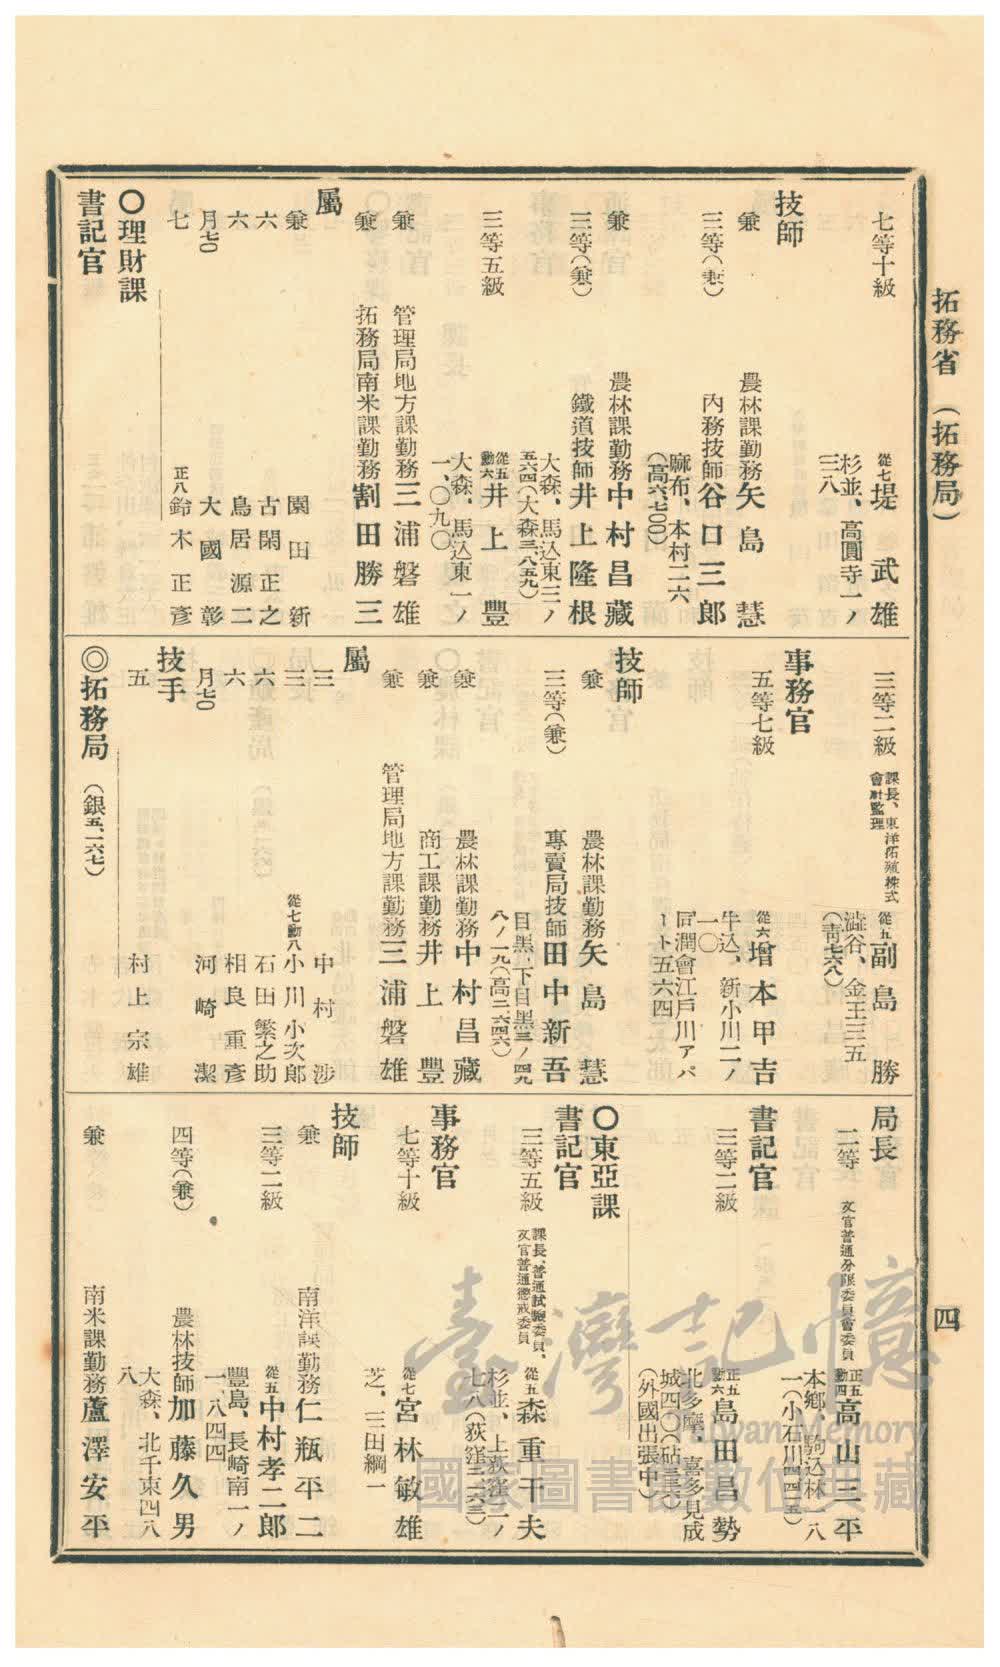 拓務省 (拓務局)
四
七等十級 從七 堤武雄
杉並、高圓寺一ノ
三八
技師
兼 農林課勤務 矢島慧
三等(兼) 內務技師 谷口三郎
麻布、本村二六
(高六、七〇〇)
兼 農林課勤務 中村昌藏
三等(兼) 鐵道技師 井上隆根
大森、馬込東三ノ
五六四(大森三八五九)
三等五級 從五勳六 井上豐
大森、馬込東一ノ
一、〇九〇
兼 管理局地方課勤務 三浦磐雄
兼 拓務局南米課勤務 割田勝三
屬
兼 園田新
六 古閑正之
六 鳥居源二
月七〇 大國彰
七 正八 鈴木正彥
〇理財課
書記官
三等二級 課長、東洋拓殖株式
會社監理 從五 副島勝
澁谷、金王三五
(靑山七六八)
事務官
五等七級 從六 增本甲吉
牛込、新小川二ノ
一〇
同潤會江戶川アパ
ート五六四
技師
兼 農林課勤務 矢島慧
三等(兼) 專賣局技師 田中新吾
目黑、下目黑三ノ四九
八ノ一九(高二六四六)
兼 農林課勤務 中村昌藏
兼 商工課勤務 井上豐
兼 管理局地方課勤務 三浦磐雄
屬
三 中村涉
三 從七勳八 小川小次郎
六 石田繁之助
六 相良重彥
月七〇 河崎潔
技手
五 村上宗雄
◎拓務局 (銀五、二六七)
局長
二等 文官普通分限委員會委員 正五勳四 高山三平
本鄕、駒込林一八
一(小石川四四五)
書記官
三等二級 正五勳六 島田昌勢
北多摩、喜多見成
城四〇〇(砧三三〇)
(外國出張中)
〇東亞課
書記官
三等五級 課長、普通試驗委員、
文官普通懲戒委員 從五 森重干夫
杉並、上荻窪二ノ
七八(荻窪三二六三)
事務官
七等十級 從七 宮林敏雄
芝、三田綱一
技師
兼 南洋課勤務 仁瓶平二
三等二級 從五 中村孝二郎
豐島、長崎南一ノ
一、八四四
四等(兼) 農林技師 加藤久男
大森、北千東四八
八
兼 南米課勤務 蘆澤安平
臺灣記憶
Taiwan Memory
國家圖書館數位典藏